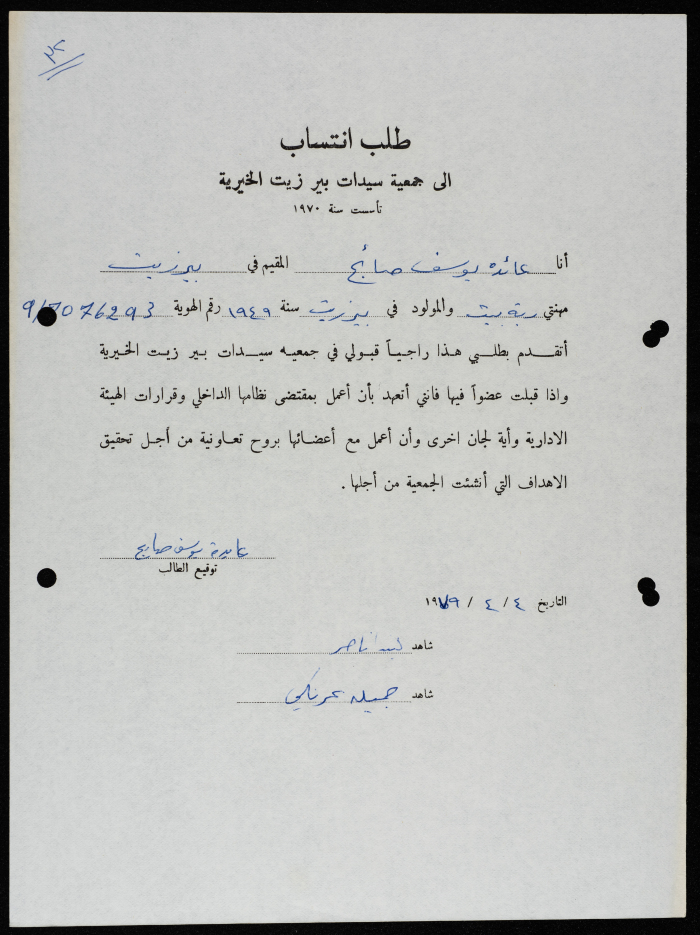 ٣٢
طلب انتساب
الى جمعية سيدات بير زيت الخيرية
تأسست سنة ١٩٧٠
أنا عائدة يوسف صايج المقيم في بيرزيت
مهنتي ربة بيت والمولود في بيرزيت سنة ١٩٤٩ رقم الهوية 9/7076293
أتقدم بطلبي هذا راجياً قبولي في جمعيه سيدات بير زيت الخيرية
واذا قبلت عضواً فيها فانني أتعهد بأن أعمل بمقتضى نظامها الداخلي وقرارات الهيئة
الادارية وأية لجان اخرى وأن أعمل مع أعضائها بروح تعاونية من أجل تحقيق
الاهداف التي أنشئت الجمعية من أجلها .
عايدة يوسف صايج
توقيع الطالب
التاريخ ٤ / ٤ / ١٩٧٩
شاهد ناصر
شاهد جميله عرنكي